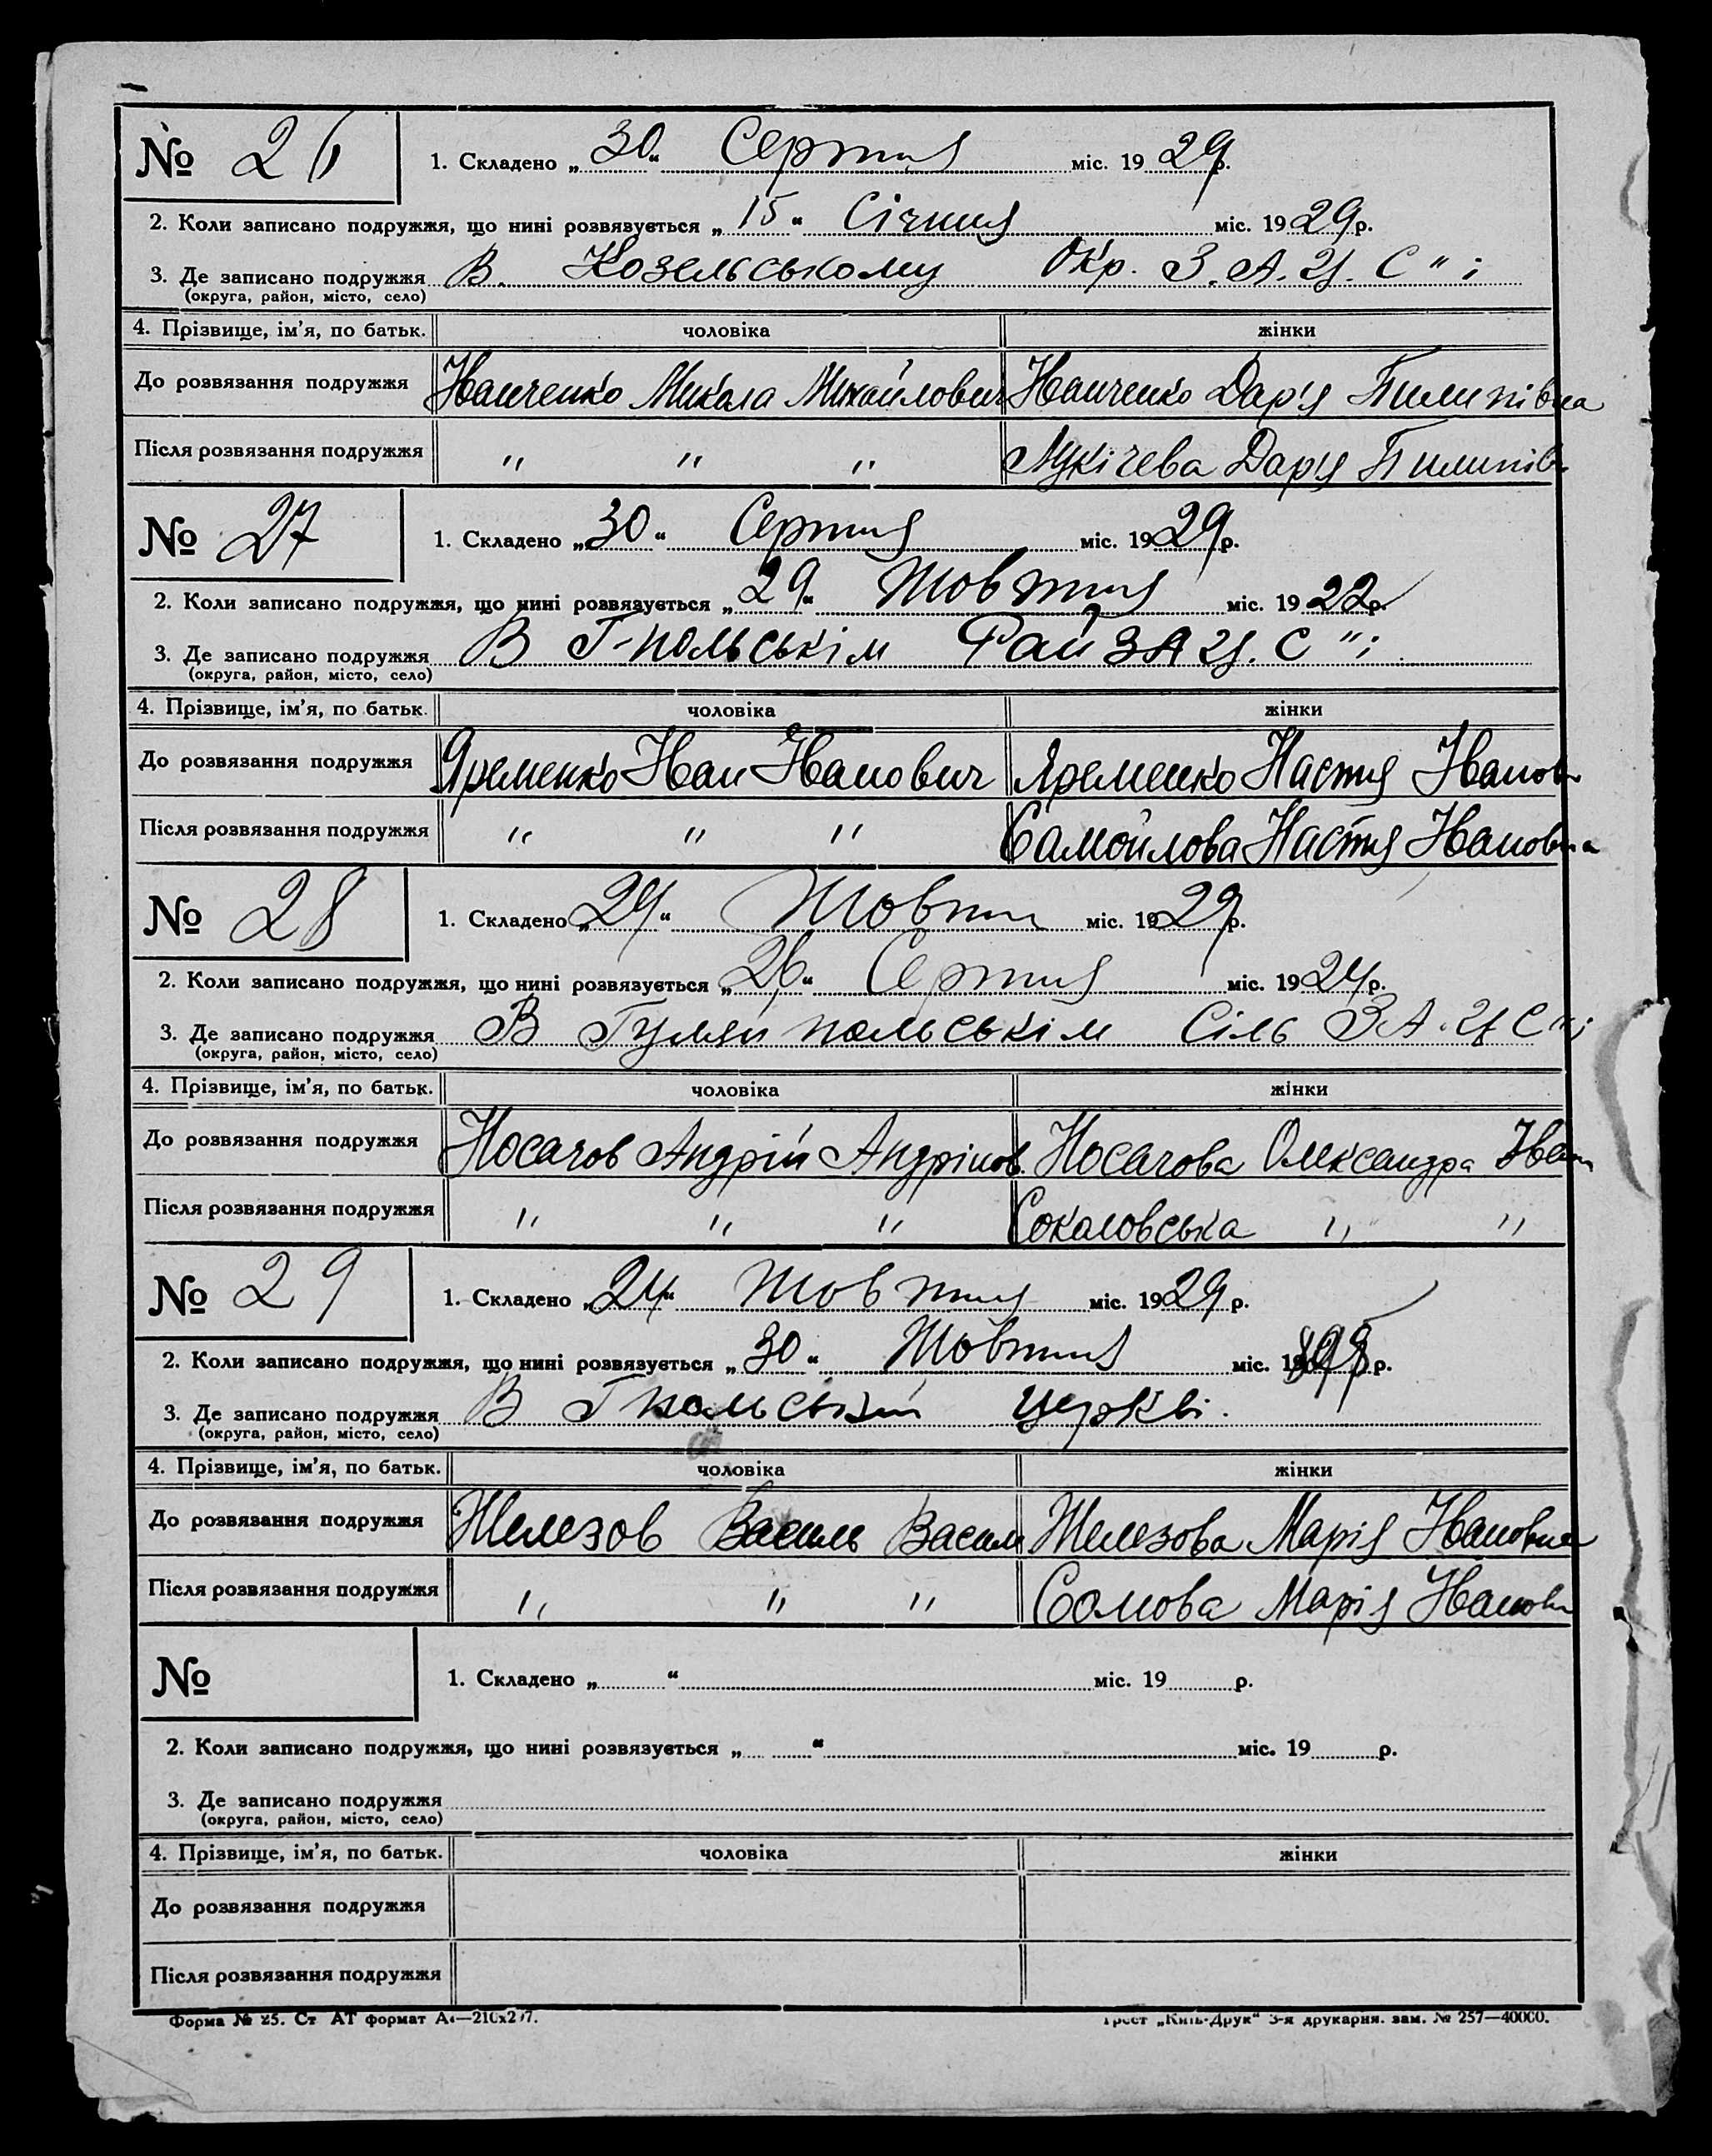 № 26
1. Складено „30“ Серпня міс. 1929 р.
2. Коли записано подружжя, що нині розвязується „15“ Січня міс. 1929 р.
3. Де записано подружжя В. Козельському Окр. З.А.Ц.С"і
(округа, район, місто, село)
4. Прізвище, ім’я, по батьк. чоловіка жінки
До розвязання подружжя Иванченко Микола Михайлович Иванченко Дар'я Пилипівна
Після розвязання подружжя " " " Лукічева Дар'я Пилипів
№ 27
1. Складено „30“ Серпня міс. 1929 р.
2. Коли записано подружжя, що нині розвязується „29“ Жовтня міс. 1922 р.
3. Де записано подружжя В Г-польськім Рай ЗАЦ.С"і
(округа, район, місто, село)
4. Прізвище, ім’я, по батьк. чоловіка жінки
До розвязання подружжя Яременко Иван Иванович Яременко Настя Иванов
Після розвязання подружжя " " " Самойлова Настя Ивановна
№ 28
1. Складено „24“ Жовтн міс. 1929 р.
2. Коли записано подружжя, що нині розвязується „26“ Серпня міс. 1924 р.
3. Де записано подружжя В Гуляйпольськім Сіль ЗА.ЦС"і
(округа, район, місто, село)
4. Прізвище, ім’я, по батьк. чоловіка жінки
До розвязання подружжя Носачов Андрій Андріиов. Носачова Олександра Иван
Після розвязання подружжя " " " Сокаловська " "
№ 29
1. Складено „24“ Жовтня міс. 1929 р.
2. Коли записано подружжя, що нині розвязується „30“ Жовтня міс. р.
3. Де записано подружжя В Гпольській церкві.
(округа, район, місто, село)
4. Прізвище, ім’я, по батьк. чоловіка жінки
До розвязання подружжя Железов Василь Васил Железова Марія Ивановна
Після розвязання подружжя " " " Сомова Марія Иванов
№
1. Складено „ “ міс. 19 р.
2. Коли записано подружжя, що нині розвязується „ “ міс. 19 р.
3. Де записано подружжя
(округа, район, місто, село)
4. Прізвище, ім’я, по батьк. чоловіка жінки
До розвязання подружжя
Після розвязання подружжя
Форма № 25. Ст АТ формат А4—210х297. Трест „Київ-Друк“ 3-я друкарня. зам. № 257—40000.